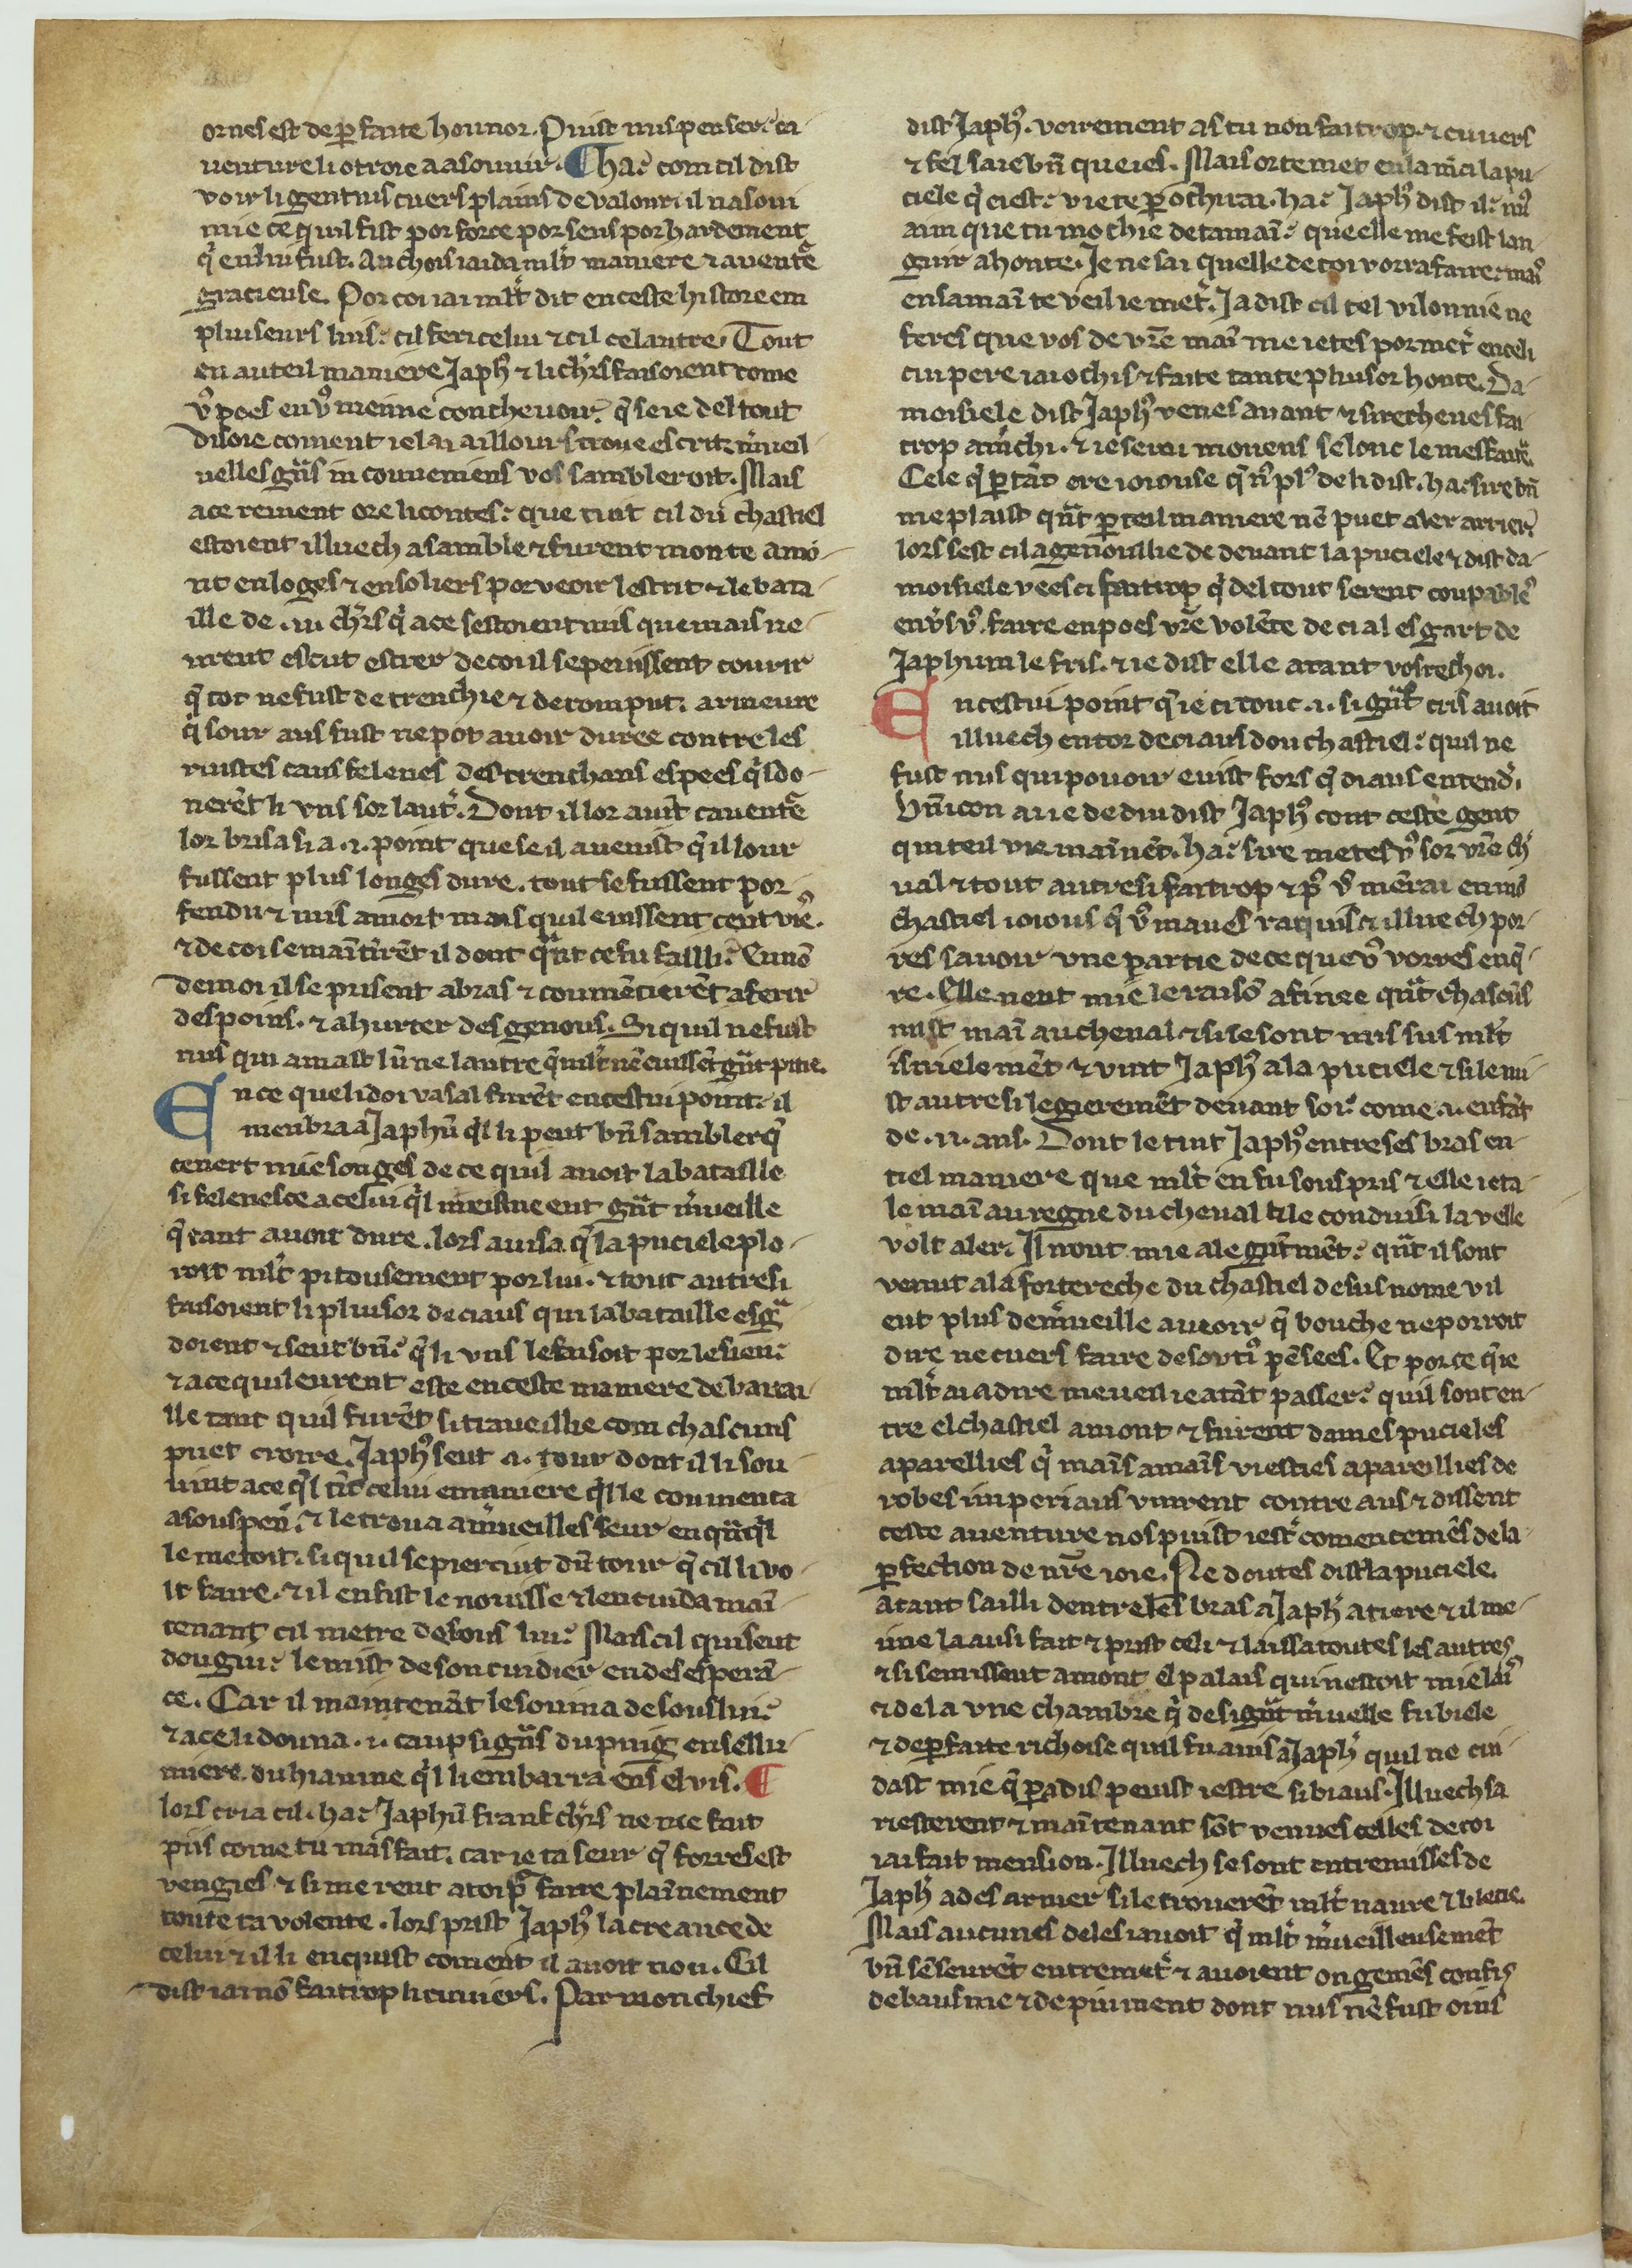 ornes est de ꝑfaite honnor. Puist nus penser. ca
venture li otroie a asouvir. Cha com cil dist
voir li gentius cuers plains de valour. il na soui
mie ce quil fist por force por sens por hardement
q̄ en lui fust. Anchois iaida ml't maniere ⁊ auentᵃe
gracieuse. Por coi iai ml't dit en ceste histore em
pluiseurs lius. cil feri celui ⁊ cil cel autre. Tout
en auteil maniere Japhꝰ ⁊ li chr̄s faisoient come
vꝰ poes en vꝰ meime conchevoir. q̄ se ie del tout
disoie coment ie lai aillours troue escrit. m̄veil
uelles gr̄ns inconueniens vos sambleroit. Mais
a ce revient ore li contes. que tuit cil du chastiel
estoient illuech asamble ⁊ furent monte amo
nt en loges ⁊ en soliers por veoir lestrit ⁊ le bata
ille de .ii. chr̄s q̄ a ce sestoient mis que mais ne
urent escut estier de coi il se peuissent couvrir
q̄ tot ne fust detrenchie ⁊ deromput. armeure
q̄ sour aus fust ne pot auoir duree contre les
ruistes caus felenes des trenchans espees q̄l do
nerēt li vns sor lautͬ. Dont il lor auīt cauentᵃe
lor brisa si a .i. point que se il auenist q̄ il lour
fussent plus longes dure. tout se fussent por
fendu ⁊ mis a mort mais quil euissent cent vies.
⁊ de coi se maītirēt il dont q̄nt ce fu failli. En nō
de moi il se prisent a bras ⁊ coumēcierēt a ferir
des poins. ⁊ a hurter des genous. Si quil ne fust
nus qui amast lū ne lautre q̄ ml't nē euissēt gr̄t pitie.
En ce que li doi vasal furēt en cestui point. il
menbra a Japhū q̄l li peut bn̄ sambler q̄
cenert mie songes de ce quil auoit la bataille
si felenesce a celui q̄l meisme eut gr̄t m̄ueille
q̄ tant auoit dure. lors auisa q̄ la puciele plo
roit ml't pitousement por lui. ⁊ tout autresi
faisoient li pluisor de ciaus qui la bataille esgᵃ
doient ⁊ seut bn̄. q̄ li vns le faisoit por le sien.
⁊ a ce quil eurent este en ceste maniere de batai
lle tant quil furēt si traueillie com chascuns
puet croire. Japhꝰ seut .i. tour dont il li sou
uint a ce q̄l tīt celui e maniere q̄l le coumenca
a souspen. ⁊ le troua a m̄ueilles seur en q̄nq̄l
le metoit. si quil se piercuit dū tour q̄ cil li vo
lt faire. ⁊ il en fist le nouisse ⁊ len cuida maī
tenant cil metre desous lui. Mais cil qui seut
dou giu. le mist de son cuidier en desesperā
ce. Car il maintenāt le souina desous lui.
⁊ a ce li douna .i. caup si gr̄ns du puig en sellu
miere du hiaume q̄l li embarra ens el vis.
lors cria cil. ha Japhū frank chr̄s ne me fait
piis come tu mas fait. car ie ta seur q̄ forres est
vengies ⁊ si me rent a toi pͬ faire plaīnement
toute ta volente. lors prist Japhꝰ la creance de
celui ⁊ il li enquist coment il auoit non. Cil
dist ia nō faitrop li cuuiers. Par mon chief
dist Japhꝰ. voirement as tu non faitrop. ⁊ cuuers
⁊ fel sai e bn̄ que ies. Mais or te met en la m̄ci la pu
ciele q̄ ci est. v ie te ꝑochirai. ha Japhꝰ dist il. ml't
aim que tu mochie de ta maī. que elle me feist lan
guir a honte. Je ne sai quelle de toi vorra faire. mais
en sa maī te veil ie metͬ. Ja dist cil tel vilonnie ne
feres que vos de vr̄e maī me ietes por metͬ en celi
cui pere iai ochis ⁊ faite tante pluisor honte. Da
moisiele dist Japhꝰ venes auant ⁊ si recheues fai
trop a m̄chi. ⁊ ie serui moiiens selonc le mesfaitͬe.
Cele q̄ ꝑ tāt ere ioiouse q̄ nꝰ plꝰ de li dist. ha sire bn̄
me plaist qn̄t ꝑ teil maniere nē puet aler arrier.
lors sest cil agenoillie de deuant la puciele ⁊ dist da
moisiele vees ci faitrop q̄ del tout se rent coupables
envꝰs vꝰ. faire en poes vr̄e volēte de ci al esgart de
Japhum le fris. ⁊ ie dist elle atant vos rechoi.
En cestui point q̄ ie ci touc .i. si gr̄nt cris auoit
illuech entor de ciaus dou chastiel. quil ne
fust nus qui pouoir euist fors q̄ di aus entendͬ.
Vn̄icon aue de diu dist Japhꝰ cont ceste gent
qui teil vie maīnēt. ha sire metes vꝰ sor vr̄e ch̄
ual ⁊ tout autresi faitrop ⁊ pꝰ vꝰ mērai en mō
chastiel ioious q̄ vꝰ maues raquis ⁊ illuech por
res sauoir vne partie de ce que vꝰ vorres enq̄
re. Elle neut mie le raisō afinee qn̄t chascūs
mist maī au cheual ⁊ si se sont mis sus ml't
isnielemēt ⁊ vint Japhꝰ a la puciele ⁊ si le mi
st autresi legierement deuant soi. come .i. enfāt
de .ii. ans. Dont le tint Japhꝰ entre ses bras en
tiel maniere que ml't en fu souspris ⁊ elle ieta
le maī au regne du cheual si le conduisi la v elle
volt aler. Il nout mie ale gr̄mēt. qn̄t il sont
venut a la fortereche du chastiel desus nome v il
eut plus de m̄ueille a ueoir q̄ bouche ne porroit
dire ne cuers faire de sortiꝰ pēsees. Et por ce q̄ ie
ml't ai a dire me ueil ie atāt passer. quil sont en
tre el chastiel amont ⁊ furent dames pucieles
aparellies q̄ maīs a maīs viesties apareillies de
robes imperiaus vinrent contre aus ⁊ dissent
ceste auenture nos puist iestͬ comencemēs de la
ꝑfection de nr̄e ioie. Ne doutes dist la puciele.
Atant sailli dentre les bras a Japhꝰ a tiere ⁊ il me
ime la ausi fait ⁊ prist celi ⁊ laissa toutes les autres
⁊ si semissent amont el palais qui nestoit mie lais
⁊ de la vne chambre q̄ de si gr̄nt m̄uelle fu biele
⁊ de ꝑfaite richoise quil fu auis a Japhꝰ quil ne cui
dast mie q̄ ꝑadis peuist iestre si biaus. Illuech sa
riesterent ⁊ maītenant sōt venues celles de coi
iai fait mension. Illuech se sont entremisses de
Japhꝰ a desarmer si le trouerēt ml't naure ⁊ blecie.
Mais aucunes deles iauoit q̄ ml't m̄ueilleusemēt
bn̄ sē seurēt entremetͬ ⁊ auoient ongemēs confis
de bausme ⁊ de piument dont nus nē fust oins